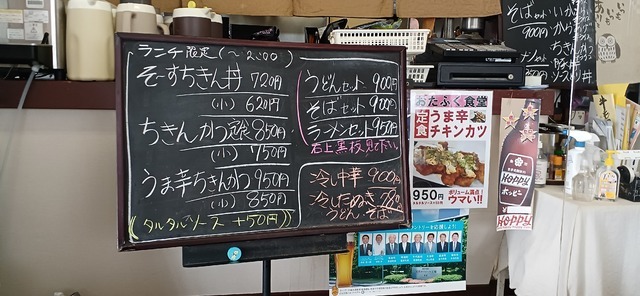 ランチ限定(～2:00)
そーすちきん丼 720円
(小) 620円
ちきんかつ定食 850円
(小) 750円
うま辛ちきんかつ 950円
(小) 850円
タルタルソース +50円
うどんセット 900円
そばセット 900円
ラーメンセット 950円
右上黒板見て下さい
冷し中華 900円
冷したぬき
うどん・そば
おたふく食堂
定食 うま辛
チキンカツ
950円
ボリューム満点!
ウマい!!
Hoppy
ホッピー
HOPPY
そばセット
900円